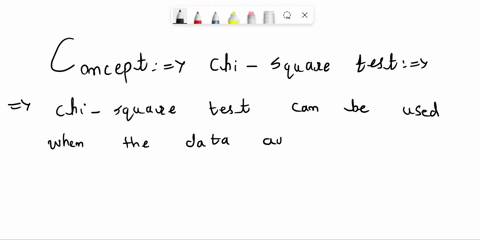 Concept:=> chi - square test:=>
=> chi - square test can be used
when the data